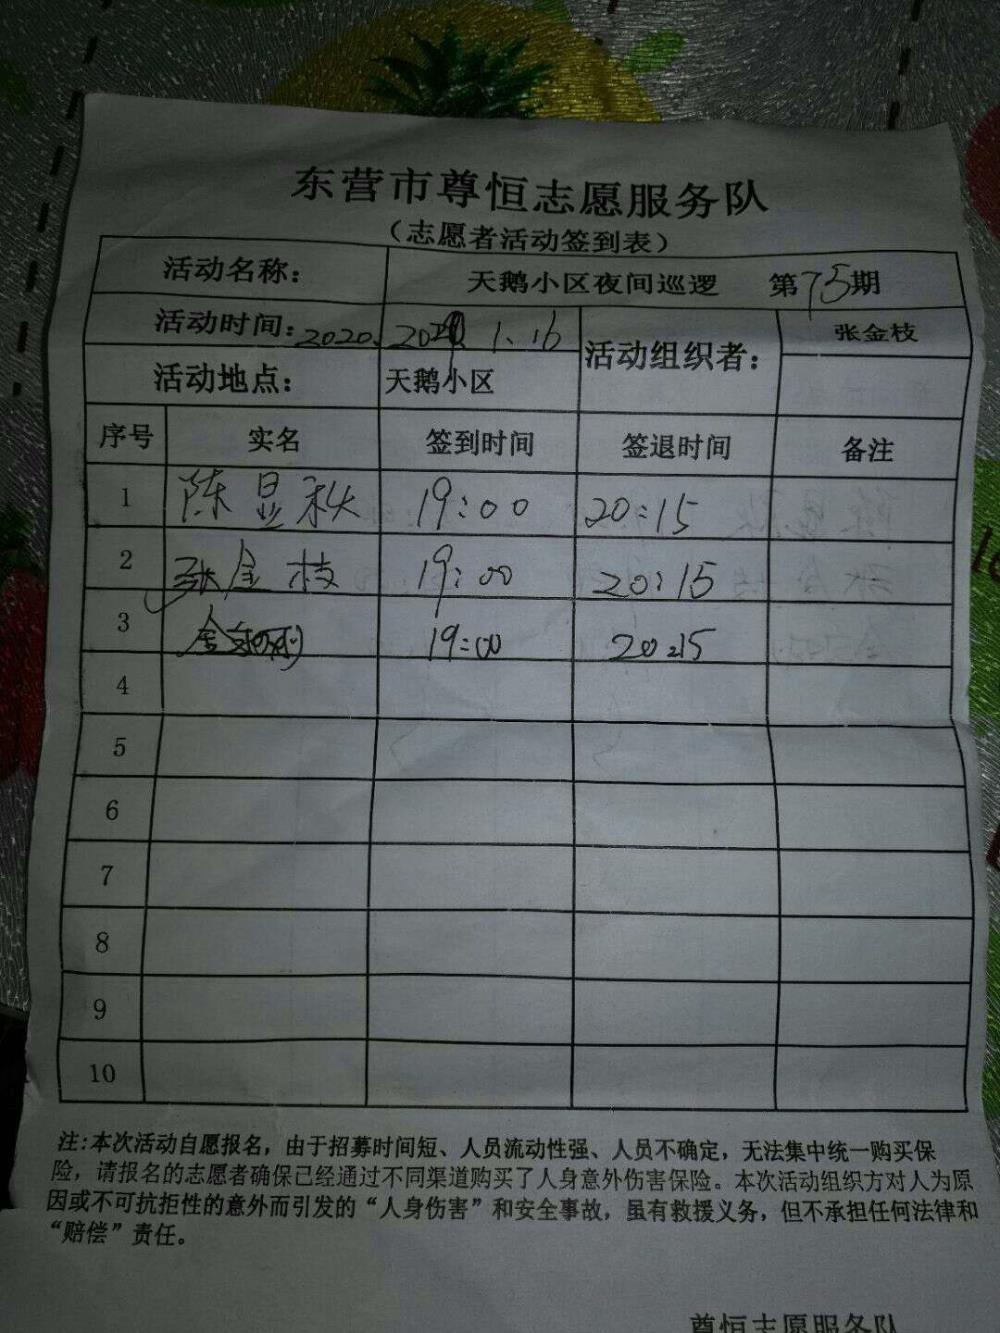 东营市尊恒志愿服务队
（志愿者活动签到表）
活动名称： 天鹅小区夜间巡逻 第75期
活动时间：2020. 1.16 活动组织者： 张金枝
活动地点： 天鹅小区
序号 实名 签到时间 签退时间 备注
1 陈显秋 19:00 20:15
2 张金枝 19:00 20:15
3 19:00 20:15
4
5
6
7
8
9
10
注:本次活动自愿报名，由于招募时间短、人员流动性强、人员不确定，无法集中统一购买保
险，请报名的志愿者确保已经通过不同渠道购买了人身意外伤害保险。本次活动组织方对人为原
因或不可抗拒性的意外而引发的“人身伤害”和安全事故，虽有救援义务，但不承担任何法律和
“赔偿”责任。
尊恒志愿服务队